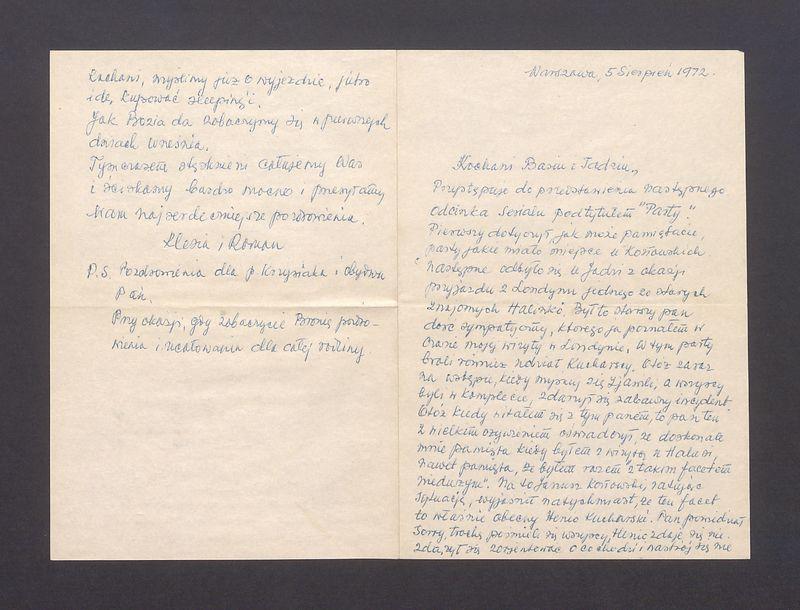 Kochani, myślimy już o wyjeździe, jutro
idę kupować sleeping'i.
Jak Bozia da zobaczymy się w pierwszych
dniach września.
Tymczasem stęsknieni całujemy Was
i ściskamy bardzo mocno i przesyłamy
Wam najserdeczniejsze pozdrowienia.
i Roman
P.S. Pozdrowienia dla p. Krzysiaka i obydwu
Pań.
Przy okazji, gdy zobaczycie Bronię pozdro-
wienia i ucałowania dla całej rodziny
Warszawa, 5 Sierpień 1972.
Kochani Basiu i Tadziu,
Przystępuję do przedstawienia następnego
odcinka serialu pod tytułem "Party".
Pierwszy dotyczył, jak może pamiętacie,
party jakie miało miejsce u Kossowskich
Następne odbyło się u Jadzi z okazji
przyjazdu z Londynu jednego ze starych
znajomych Halinki. Był to starszy pan
dość sympatyczny, którego ja poznałem w
czasie mojej wizyty w Londynie. W tym party
brali również udział Kucharscy. Otóż zaraz
na wstępie, kiedy myśmy się zjawili, a wszyscy
byli w komplecie, zdarzył się zabawny incydent
Otóż kiedy witałem się z tym panem, to pan ten
z wielkim ożywieniem oświadczył, że doskonale
mnie pamięta kiedy byłem z wizytą u Halusi,
nawet pamięta, że byłem razem "z takim facetem
nieduzym". Na to Janusz Kossowski, ratując
sytuację, wyjaśnił natychmiast, że ten facet
to właśnie obecny Henio Kucharski. Pan powiedział
sorry, trochę pośmieli się wszyscy, Henio zdaje się nie
zdążył się zorientować o co chodzi i nastrój się nie